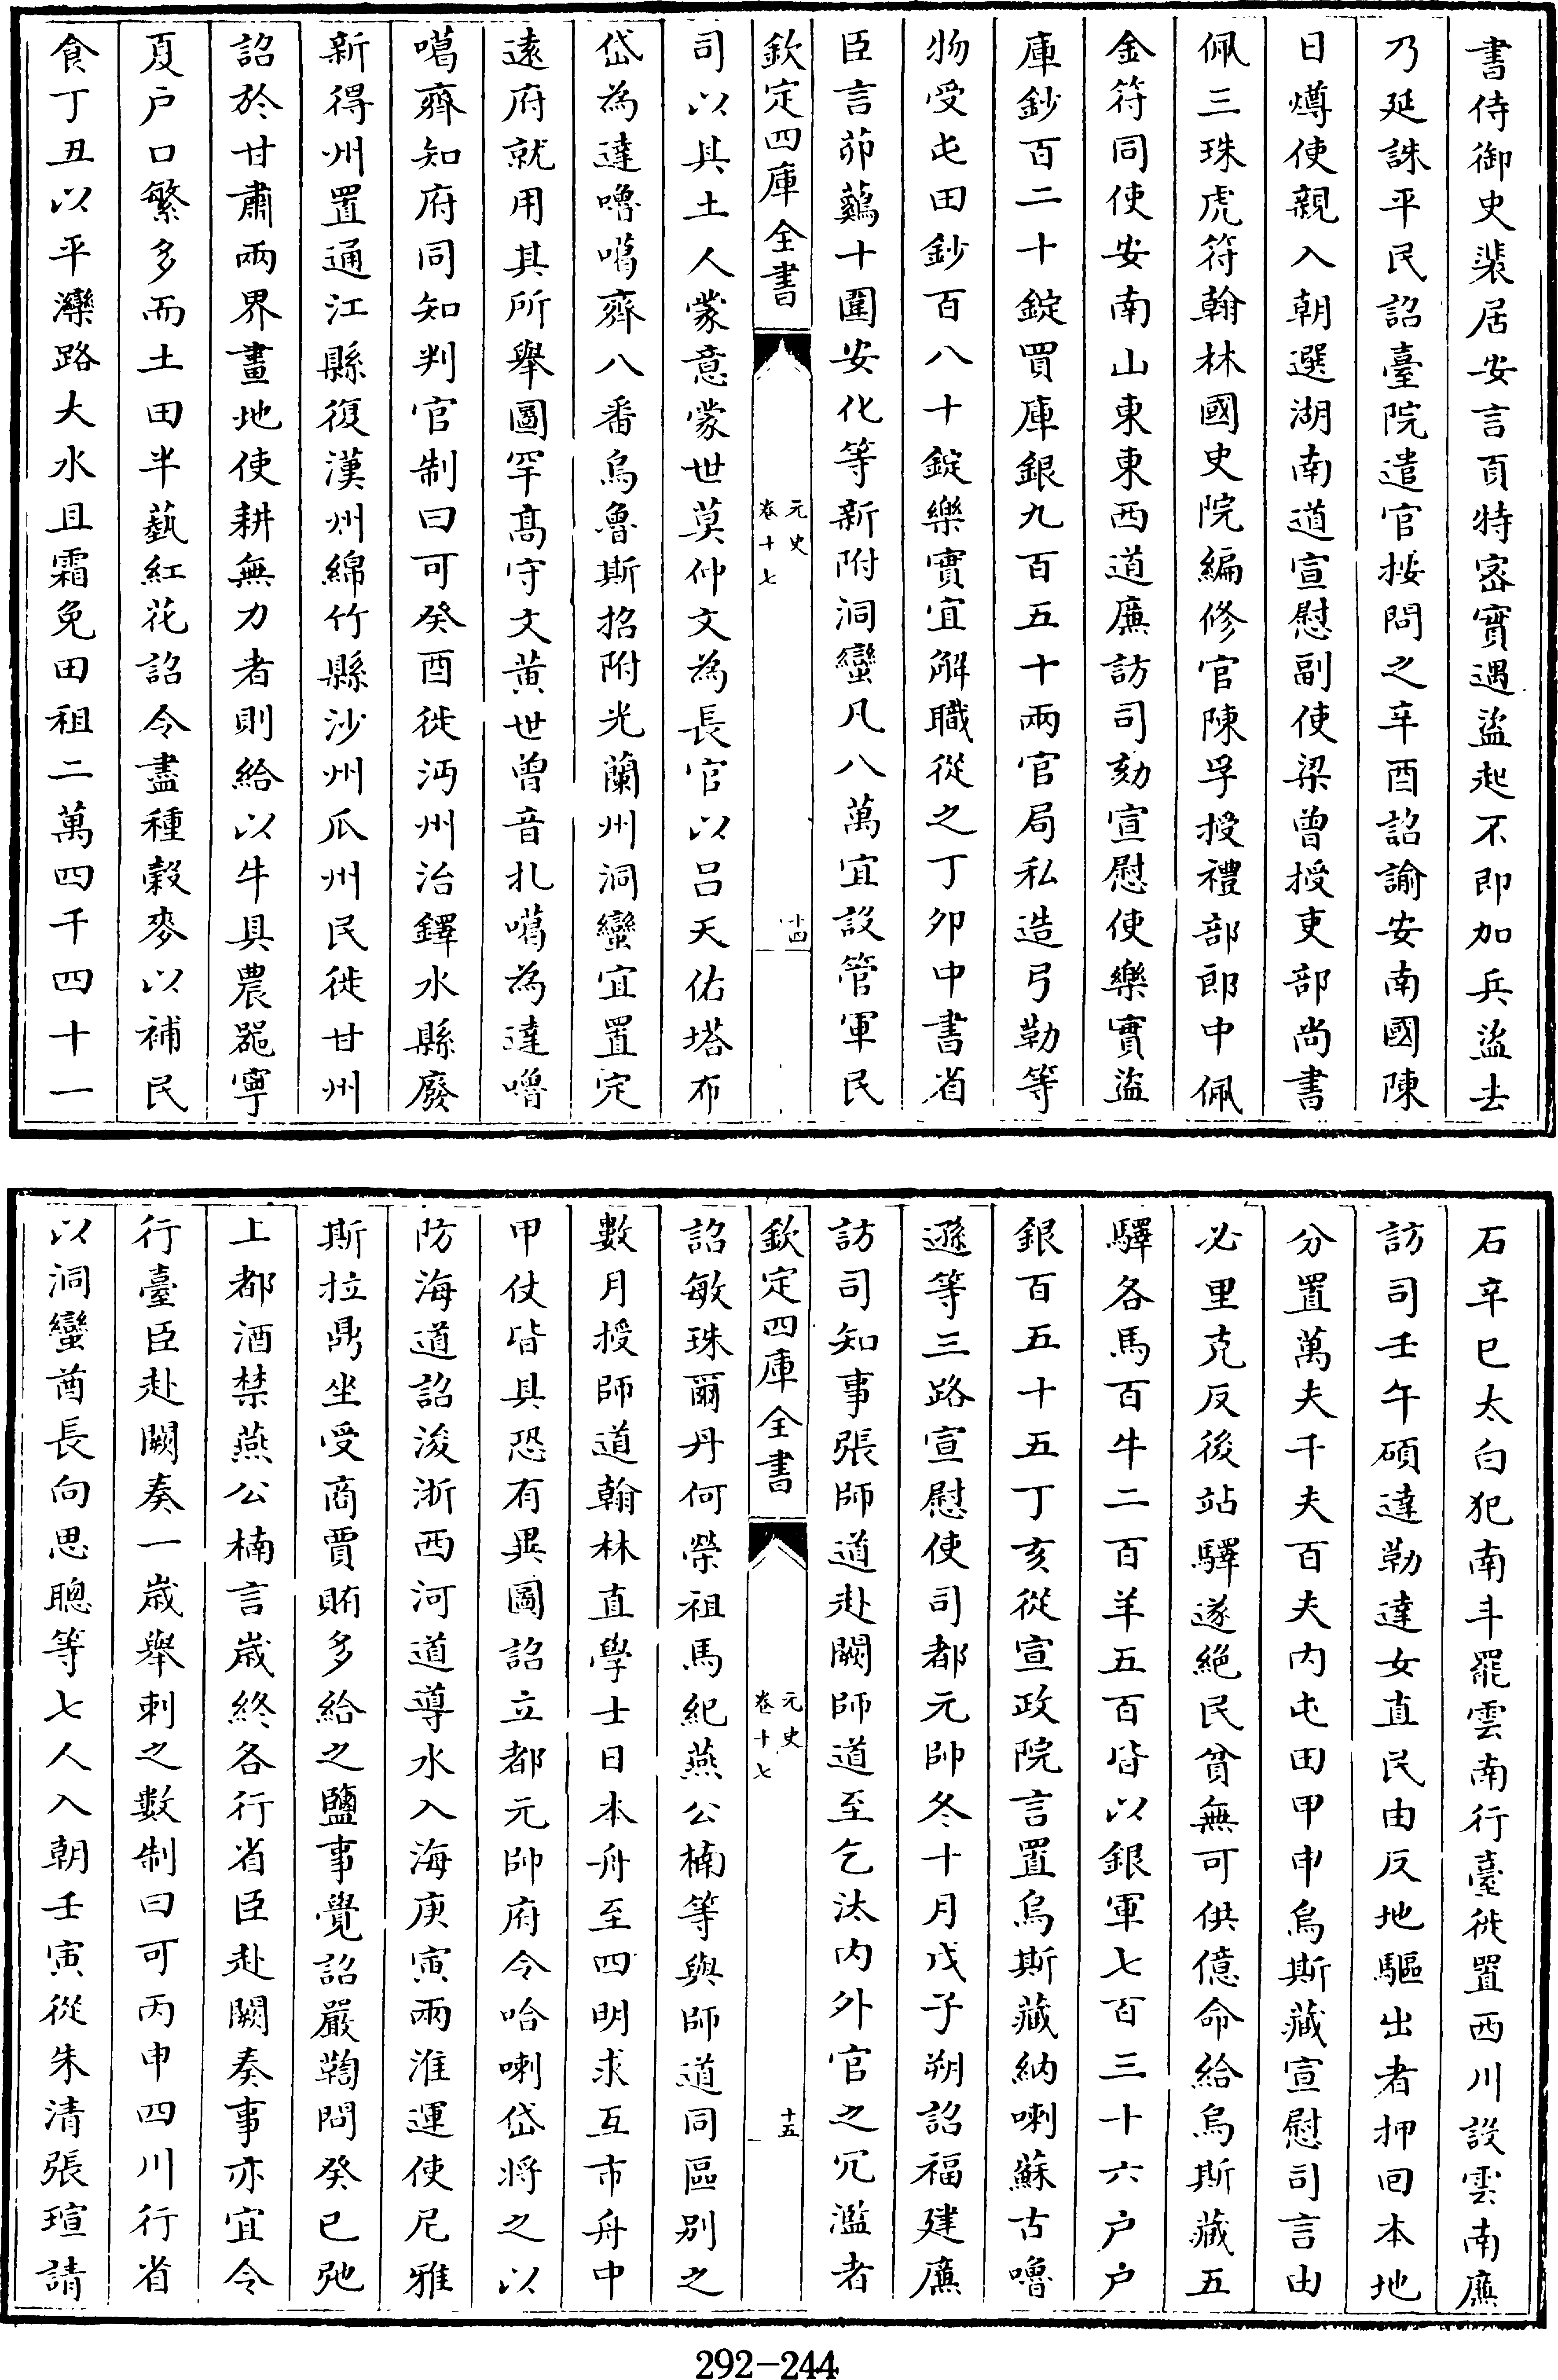 書侍御史裴居安言頁特宻實遇盜起不即加兵盜去
乃延誅平民詔臺院遣官按問之辛酉詔諭安南國陳
日燇使親入朝選湖南道宣慰副使梁曾授吏部尚書
佩三珠虎符翰林國史院編修官陳孚授禮部郎中佩
金符同使安南山東東西道廉訪司劾宣慰使樂實盜
庫鈔百二十錠買庫銀九百五十兩官局私造弓勒等
物受屯田鈔百八十錠樂實宜解職從之丁卯中書省
臣言茆蘺十圍安化等新附洞蠻凡八萬宜設管軍民
欽定四庫全書
元史
卷十七
十四
司以其土人蒙意蒙世莫仲文為長官以吕天佑塔布
岱為達嚕噶齊八番烏魯斯招附光蘭州洞蠻宜置定
逺府就用其所舉圖罕髙守文黄世曾音扎噶為達嚕
噶齊知府同知判官制曰可癸酉徙沔州治鐸水縣廢
新得州置通江縣復漢州綿竹縣沙州瓜州民徙甘州
詔於甘肅兩界畫地使耕無力者則給以牛具農器寧
夏户口繁多而土田半藝紅花詔令盡種榖麥以補民
食丁丑以平灤路大水且霜免田租二萬四千四十一
石辛巳太白犯南斗罷雲南行臺徙置西川設雲南廉
訪司壬午碩達勒達女直民由反地驅出者押回本地
分置萬夫千夫百夫内屯田甲申烏斯藏宣慰司言由
必里克反後站驛遂絕民貧無可供億命給烏斯藏五
驛各馬百牛二百羊五百皆以銀軍七百三十六户户
銀百五十五丁亥從宣政院言置烏斯藏納喇蘇古嚕
遜等三路宣慰使司都元帥冬十月戊子朔詔福建廉
訪司知事張師道赴闕師道至乞汰内外官之冗濫者
欽定四庫全書
元史
卷十七
十五
詔敏珠爾丹何榮祖馬紀燕公楠等與師道同區别之
數月授師道翰林直學士日本舟至四明求互市舟中
甲仗皆具恐有異圖詔立都元帥府令哈喇岱將之以
防海道詔浚浙西河道導水入海庚寅兩淮運使尼雅
斯拉鼎坐受商賈賄多給之鹽事覺詔嚴鞫問癸巳弛
上都酒禁燕公楠言歲終各行省臣赴闕奏事亦宜令
行臺臣赴闕奏一歲舉刺之數制曰可丙申四川行省
以洞蠻酋長向思聰等七人入朝壬寅從朱清張瑄請
292-244